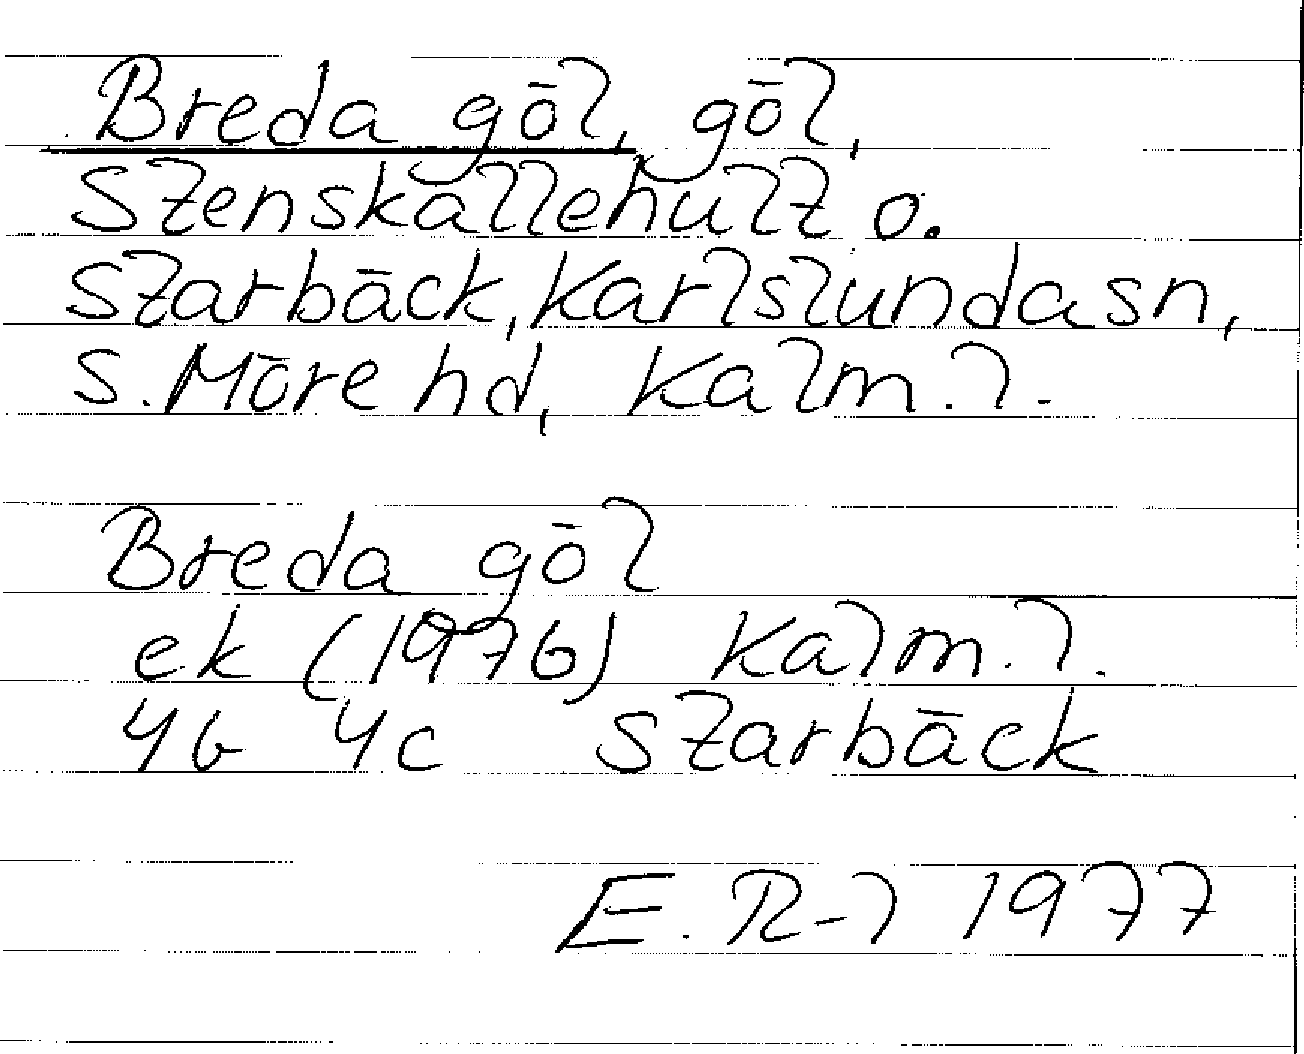 Breda göl, göl,
Stenskällehult o.
Starbäck, Karlslundasn,
S. Möre hd, Kalm. l.
Breda göl
ek (1976) Kalm. l.
4G 4c Starbäck
E. R-l 1977